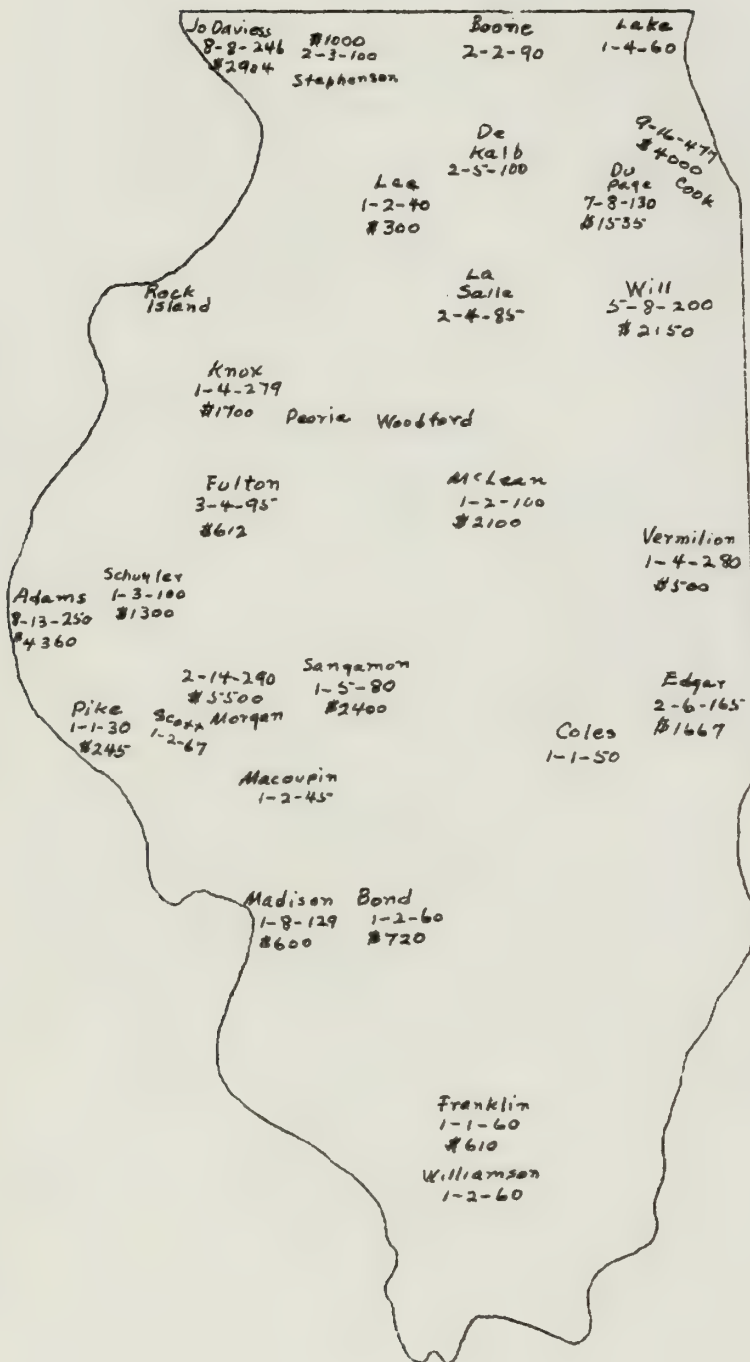 Jo Daviess
8-8-246
$2904
$1000
2-3-100
Stephenson
Boone
2-2-90
Lake
1-4-60
De
Kalb
2-5-100
9-16-477
$4000
Cook
Du
Page
7-8-130
$1535
Lee
1-2-40
$300
Rock
Island
La
Salle
2-4-85
Will
5-8-200
$2150
Knox
1-4-279
$1700
Peoria Woodford
Fulton
3-4-95
$612
McLean
1-2-100
$2100
Vermilion
1-4-280
$500
Adams
8-13-250
$4360
Schuyler
1-3-100
$1300
2-14-290
$5500
Morgan
Sangamon
1-5-80
$2400
Edgar
2-6-165
$1667
Pike
1-1-30
$245
Scott
1-2-67
Coles
1-1-50
Macoupin
1-2-45
Madison
1-8-129
$600
Bond
1-2-60
$720
Franklin
1-1-60
$610
Williamson
1-2-60